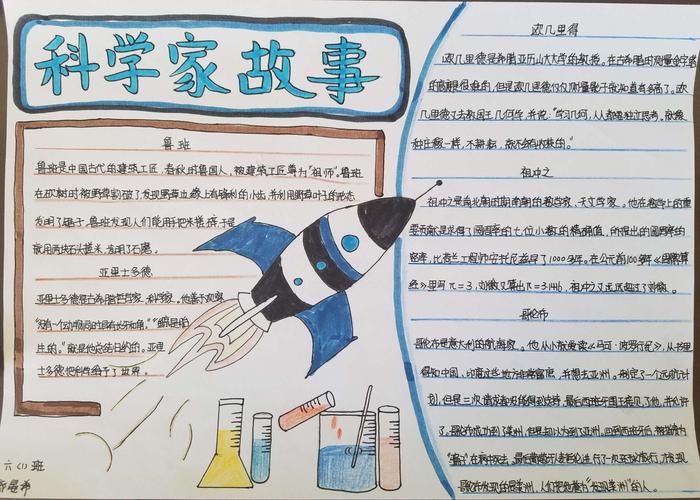 科学家故事
鲁班
鲁班是中国古代的建筑工匠，春秋时鲁国人，被建筑工匠尊为“祖师”。鲁班
在砍树时被野草割破了发现野草边缘上有锋利的小齿，并利用野草叶子的形态
发明了锯子，鲁班发现人们能用手把米搓碎，于是
就用两块石头搓米，发明了石磨。
亚里士多德
亚里士多德是古希腊哲学家、科学家。他善于观察
“没有一个动物同时具有长牙和角。”
止的。”就是他总结归纳的。亚里
士多德他的作给予了世界。
欧几里得
欧几里德是希腊亚历山大大学的教授。在古希腊时测量金字塔
的高度是很难的，但是欧几里德仅仅测量影子就知道有多高了。欧
几里德又去教国王几何学，并说：“学习几何，人人都要独立思考。就像
种庄稼一样，不耕耘，就不会有收获的。”
祖冲之
祖冲之是南北朝时期南朝的数学家，天文学家。他在数学上的重
要贡献是求得了圆周率的七位小数的精确值，所推出的圆周率的
密率，比荷兰工程师安托尼兹早了1000多年。在公元前100多年《周髀算
经》里写π=3，刘徽又算出π=3.1416，祖冲之又远远超过了刘徽。
哥伦布
哥伦布是意大利的航海家。他从小就爱读《马可·波罗行纪》，从书里
得知中国，印度这些地方非常富庶，并想去亚洲。制定了一个远航计
划，但是三次请求都没能得到支持，最后西班牙国王接见了他，并允许
了。哥伦布成功到了美洲，但是却以为到了亚洲，回到西班牙后，被指责为
哥伦布发现的是美洲，人们把他称为“发现美洲”的人。
六（1）班